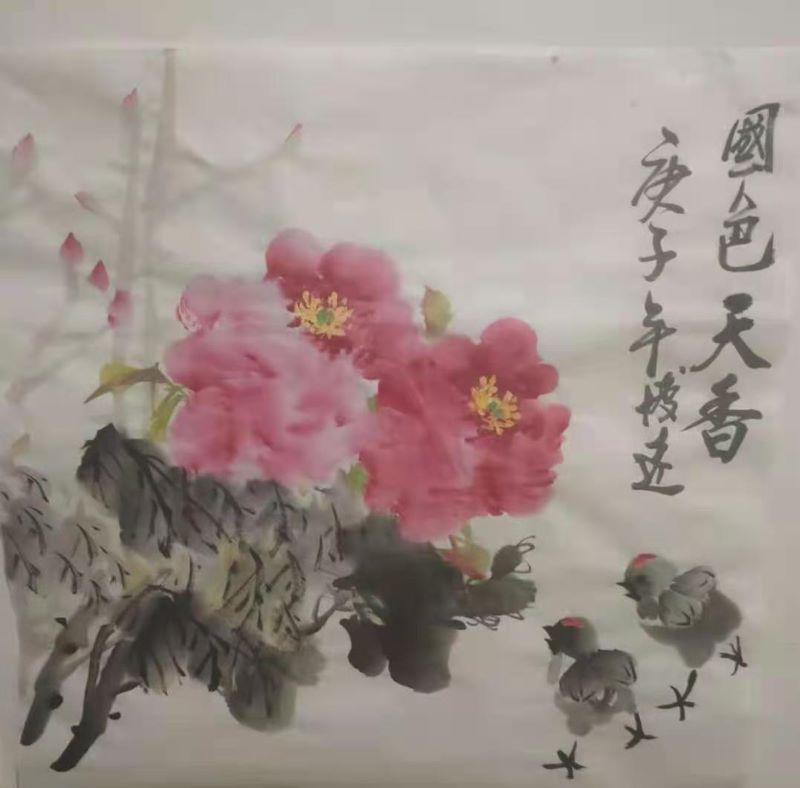 國色天香
庚子年